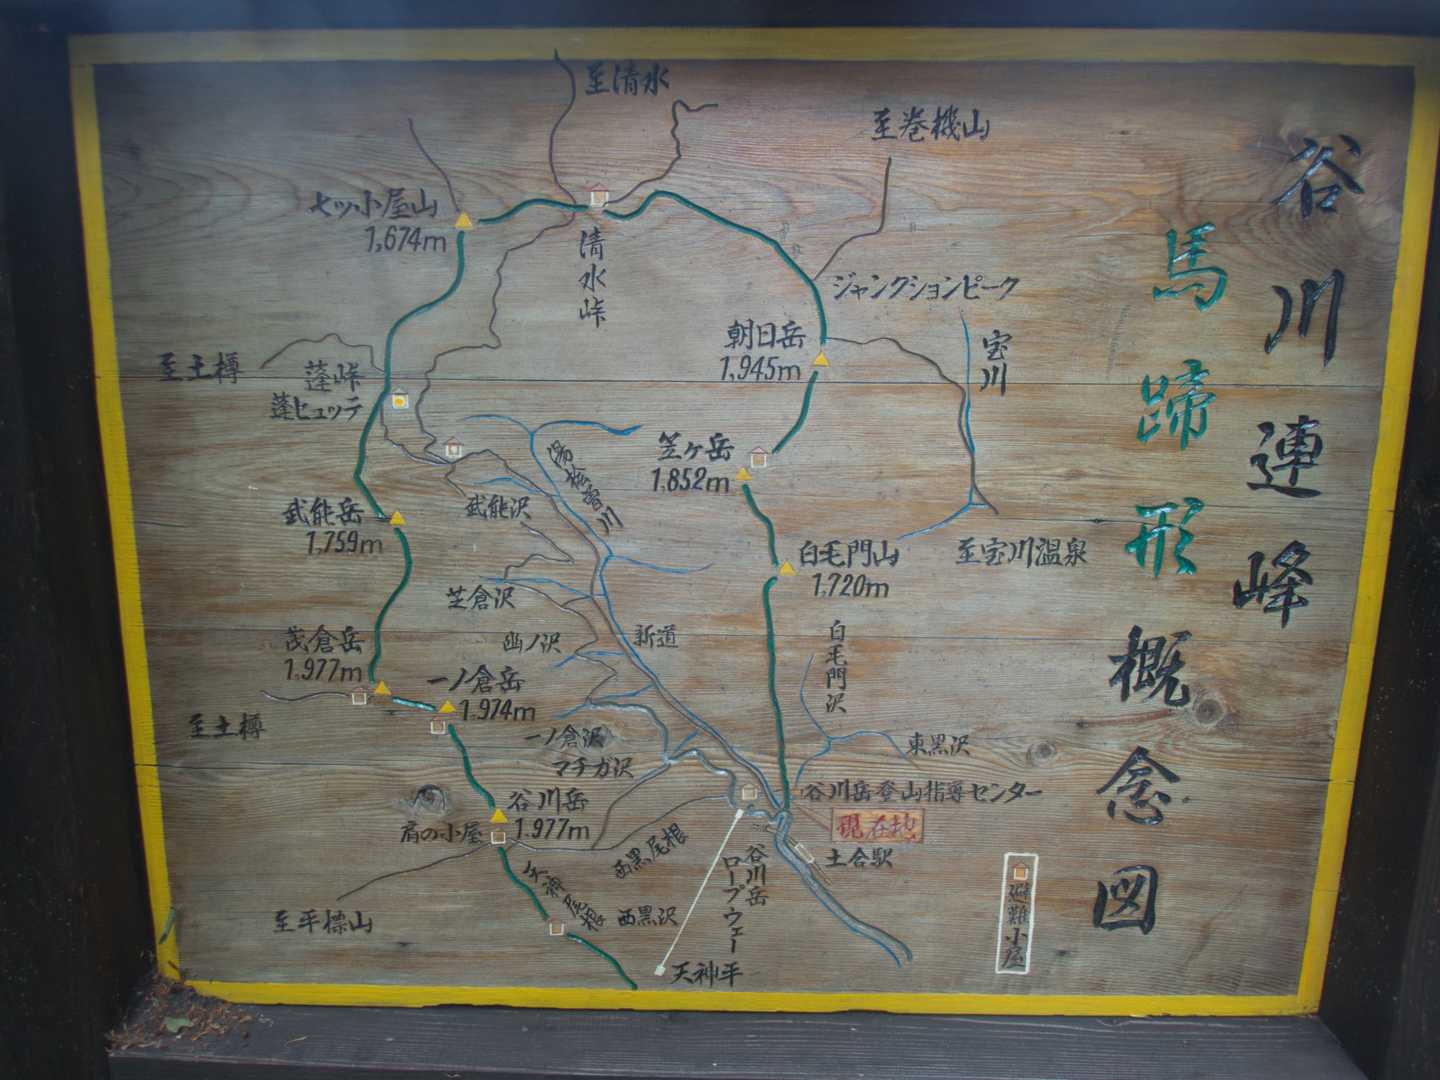 谷川連峰
馬蹄形概念図
至清水
至巻機山
七ッ小屋山
1,674m
清水峠
ジャンクションピーク
朝日岳
1,945m
宝川
至土樽
蓬峠
蓬ヒュッテ
笠ヶ岳
1,852m
湯桧曽川
武能沢
武能岳
1,759m
白毛門山
1,720m
至宝川温泉
芝倉沢
幽ノ沢
新道
白毛門沢
茂倉岳
1,977m
一ノ倉岳
1,974m
至土樽
一ノ倉沢
東黒沢
マチガ沢
谷川岳
1,977m
谷川岳登山指導センター
現在地
肩の小屋
西黒尾根
土合駅
谷川岳
ロープウェー
天神尾根
西黒沢
至平標山
天神平
避難小屋